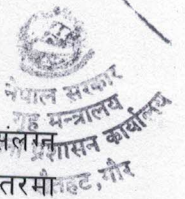 नेपाल सरकार
गृह मन्त्रालय
प्रशासन कार्यालय
संलग्न
तहट, गौर
तरमा